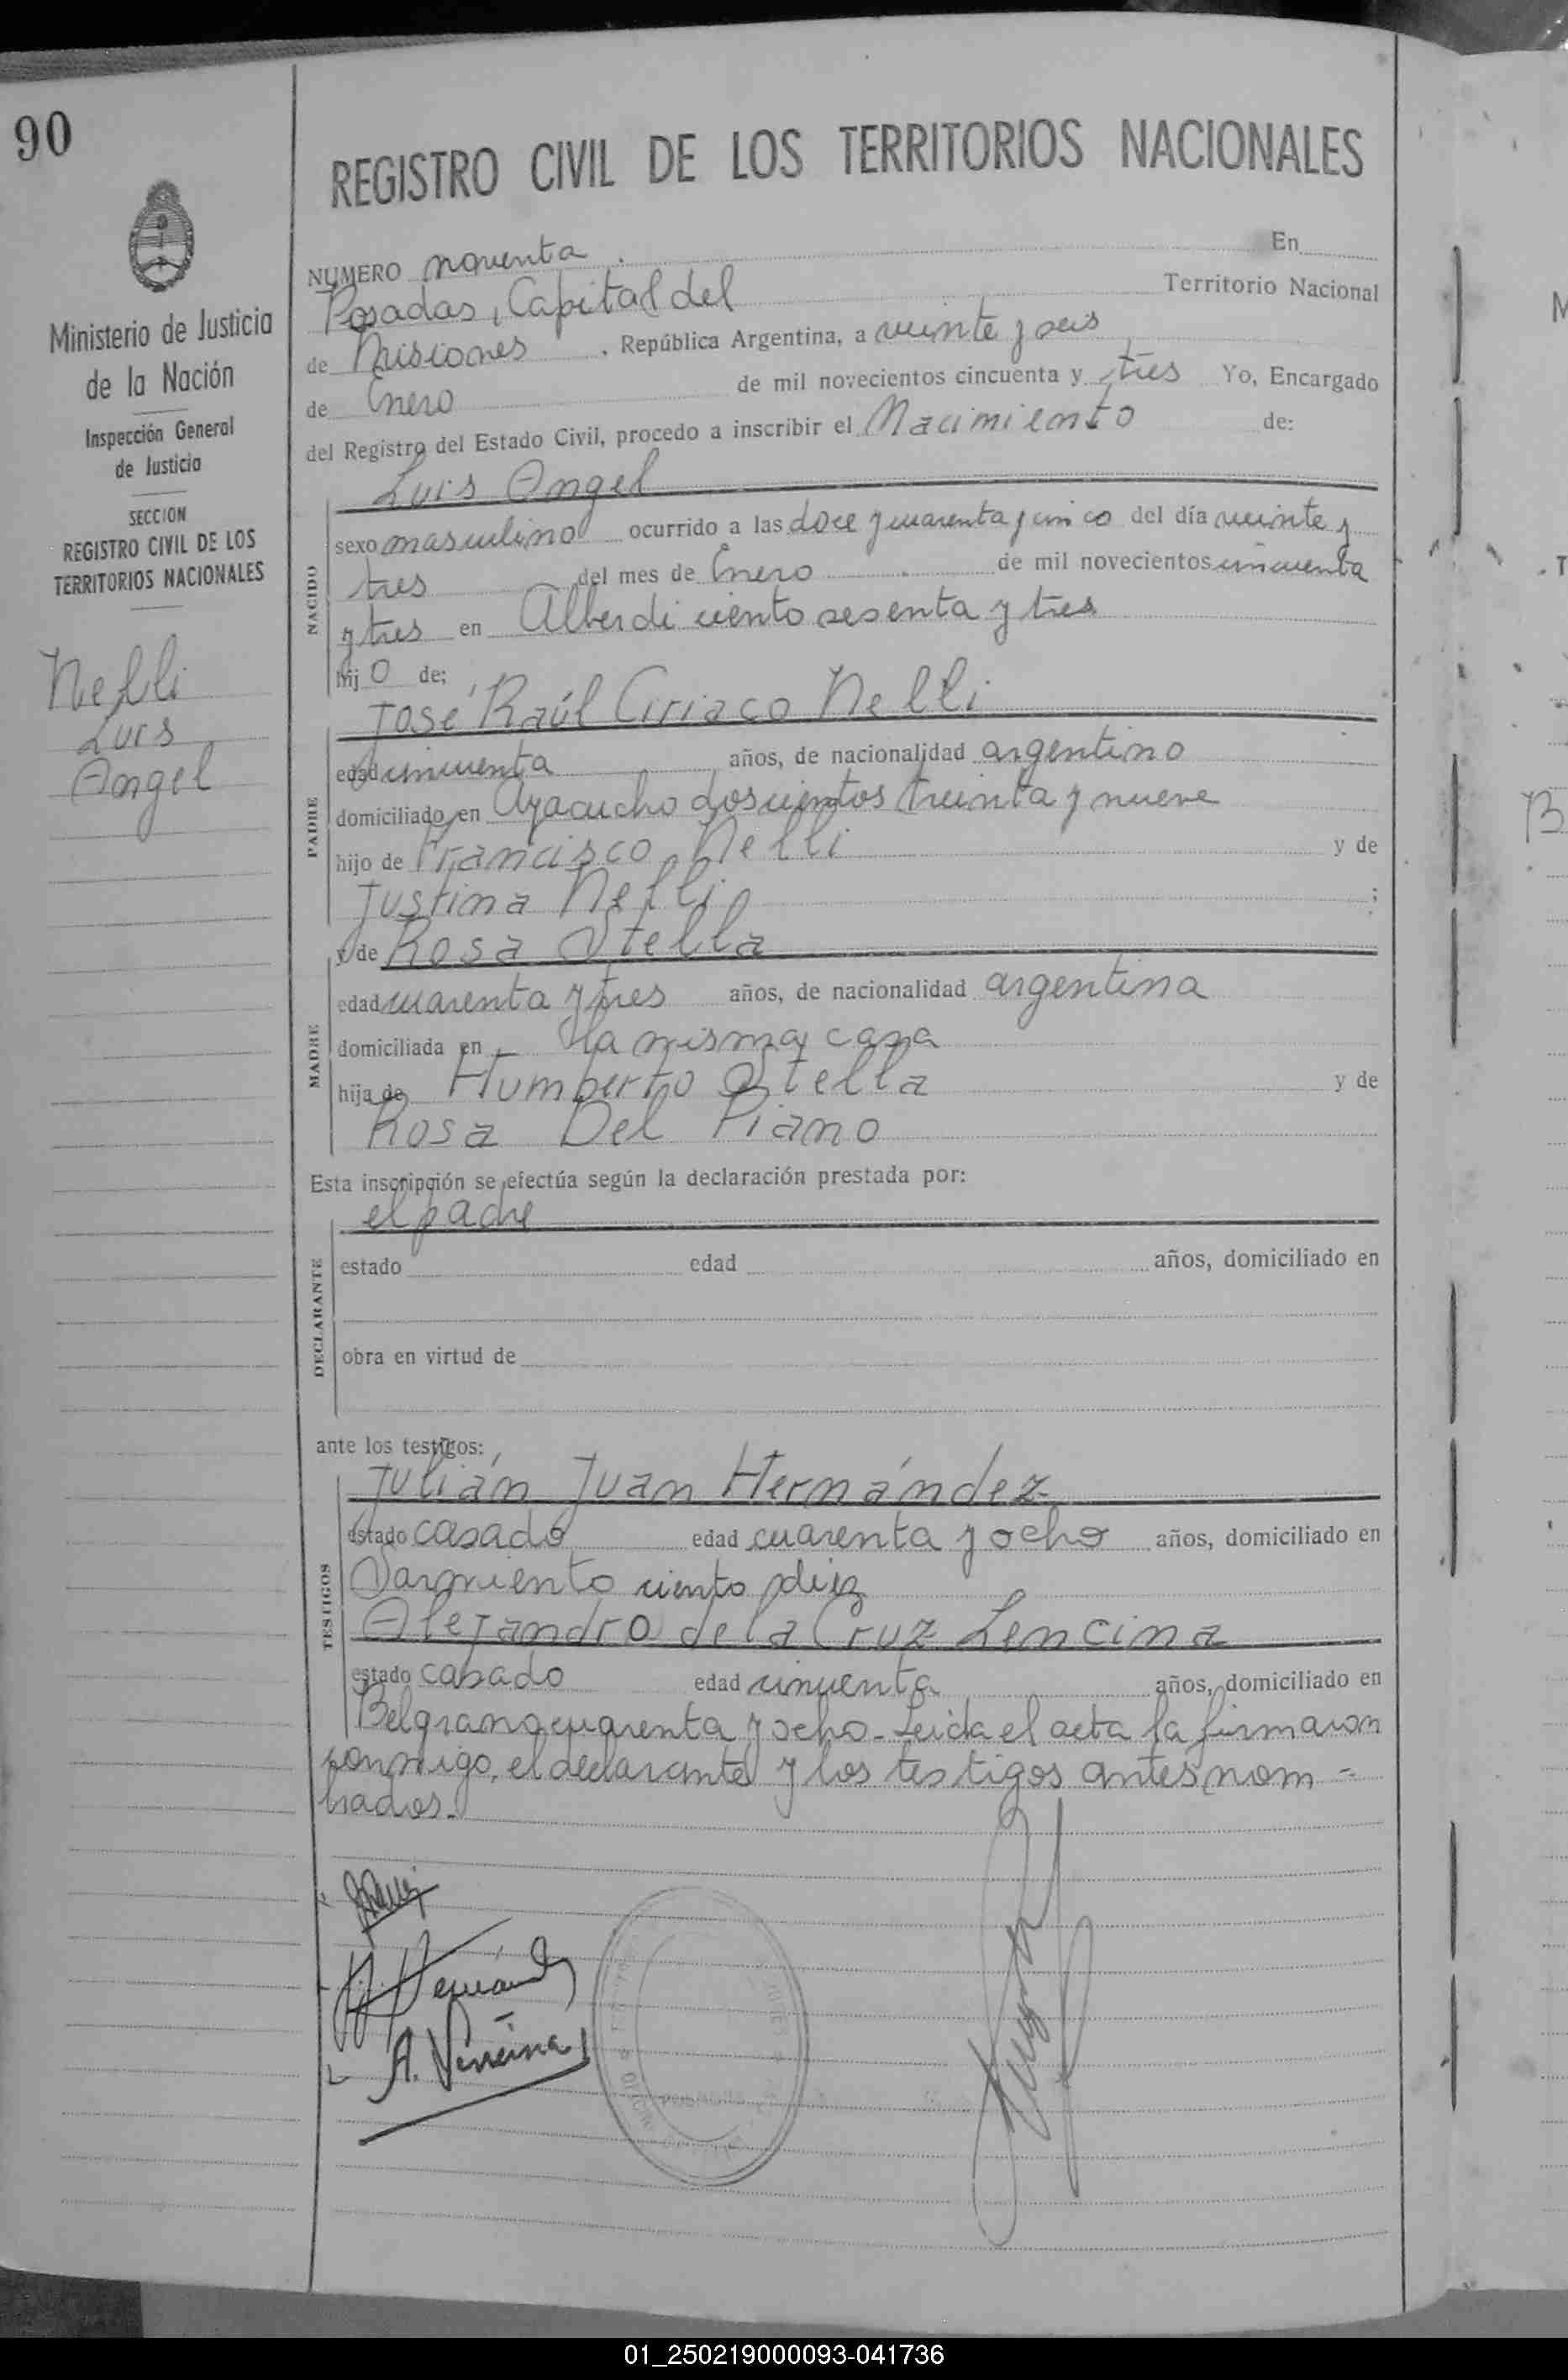 90
Ministerio de Justicia
de la Nación
Inspección General
de Justicia
SECCION
REGISTRO CIVIL DE LOS
TERRITORIOS NACIONALES
Nelli
Luis
Angel
REGISTRO CIVIL DE LOS TERRITORIOS NACIONALES
NUMERO noventa. En
Posadas, Capital del Territorio Nacional
de Misiones, República Argentina, a veinte y seis
de Enero de mil novecientos cincuenta y tres Yo, Encargado
del Registro del Estado Civil, procedo a inscribir el Nacimiento de:
NACIDO
Luis Angel
sexo masculino ocurrido a las doce y cuarenta y cinco del día veinte y
tres del mes de Enero de mil novecientos cincuenta
y tres en Alberdi ciento sesenta y tres
hijo de:
PADRE
José Raúl Ciriaco Nelli
edad cincuenta años, de nacionalidad argentino
domiciliado en Ayacucho doscientos treinta y nueve
hijo de Francisco Nelli y de
Justina Nelli ;
y de Rosa Stella
MADRE
edad cuarenta y tres años, de nacionalidad argentina
domiciliada en la misma casa
hija de Humberto Stella y de
Rosa Del Piano
Esta inscripción se efectúa según la declaración prestada por:
DECLARANTE
el padre
estado edad años, domiciliado en
obra en virtud de
ante los testigos:
TESTIGOS
Julián Juan Hernández
estado casado edad cuarenta y ocho años, domiciliado en
Sarmiento ciento diez
Alejandro de la Cruz Lencina
estado casado edad cincuenta años, domiciliado en
Belgrano cuarenta y ocho - Leida el acta la firmaron
conmigo, el declarante y los testigos antes nom=
brados.-
Hernández
A. Lencina
01_250219000093-041736